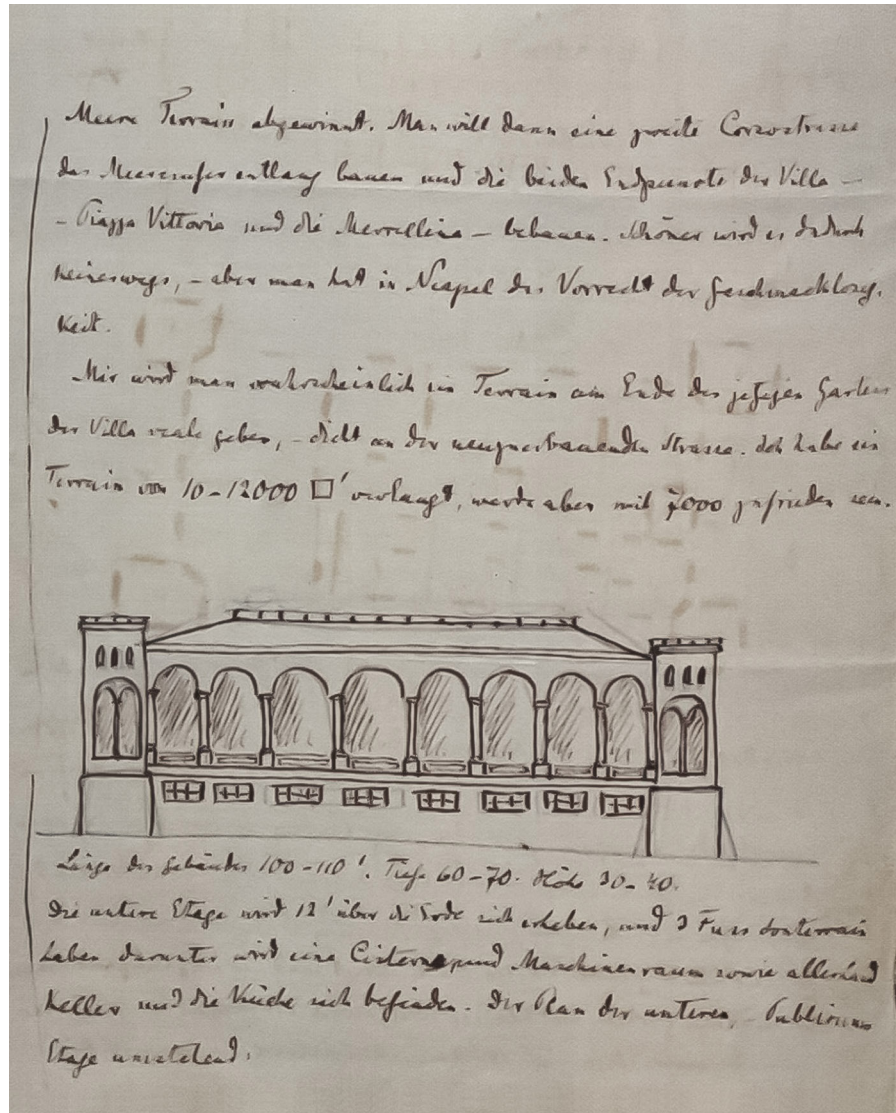 Meere Terrain abgewinnt. Man will dann eine zweite Corsostrasse
das Meeresufer entlang bauen und die beiden Endpunkte der Villa –
– Piazza Vittoria und die Mergellina – bebauen. Schöner wird es dadurch
keineswegs, – aber man hat in Neapel das Vorrecht der Geschmacklosig-
keit.
Mir wird man wahrscheinlich ein Terrain am Ende des jetzigen Gartens
der Villa reale geben, – dicht an der neuzuerbauenden Strasse. Ich habe ein
Terrain von 10–12000 □' verlangt, werde aber mit 7000 zufrieden sein.
Länge des Gebäudes 100–110'. Tiefe 60–70. Höhe 30–40.
Die untere Etage wird 12' über die Erde sich erheben, und 3 Fuss Souterrain
haben darunter wird eine Cisterne und Maschinenraum sowie allerhand
Keller und die Küche sich befinden. Der Plan der unteren, Publicums
Etage umstehend.